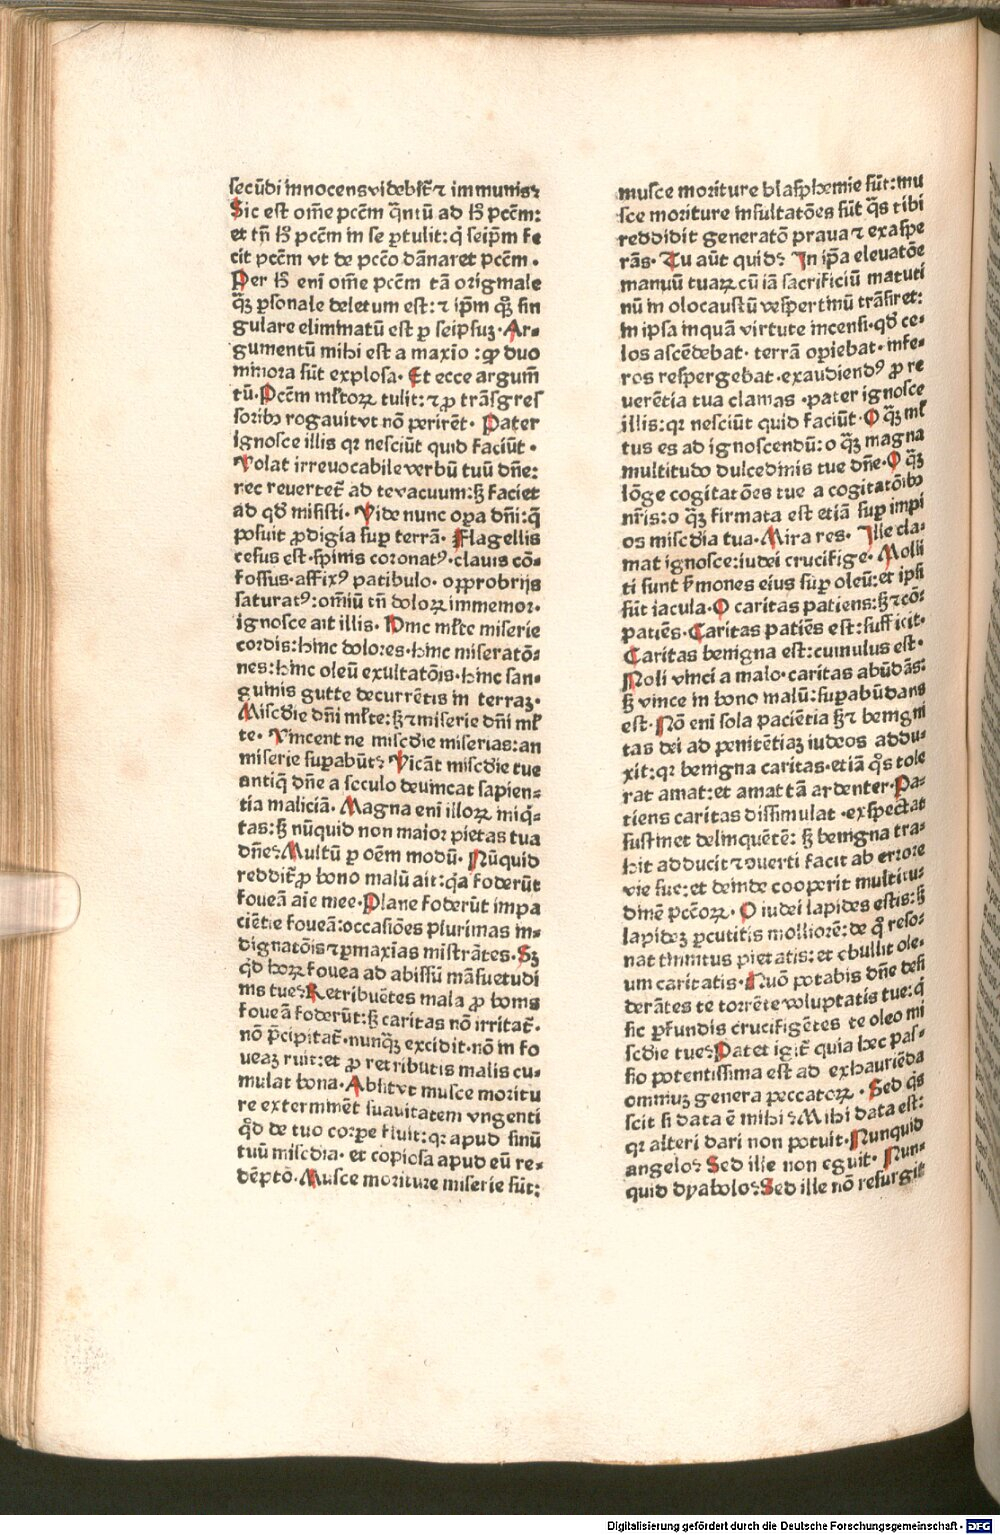 secūdi innocens videbit̄ ⁊ immunis?
Sic est om̄e pcc̄m q̄ntū ad h̄ pcc̄m:
et tn̄ h̄ pcc̄m in se ꝑtulit: q̄ seip̄m fe
cit pcc̄m vt de pcc̄o dānaret pcc̄m.
Per h̄ eni om̄e pcc̄m tā originale
q̄ꝫ ꝑsonale deletum est: ⁊ ip̄m qꝰ sin
gulare eliminatū est ꝑ seipsuꝫ. Ar-
gumentū mihi est a maxīo: ꝙ duo
minora sūt explosa. Et ecce argum̄
tū. Pcc̄m ml̄torꝝ tulit: ⁊ ꝓ trāsgres
soribꝰ rogavit vt nō perirēt. Pater
ignosce illis qꝛ nesciūt quid faciūt.
Volat irrevocabile verbū tuū dn̄e:
nec revertet̄ ad te vacuum: sꝫ faciet
ad qd̄ misisti. Vide nunc oꝑa dn̄i: q̄
posuit ꝓdigia suꝑ terrā. Flagellis
cesus est. spinis coronatꝰ. clauis cō-
fossus. affixꝰ patibulo. opprobrijs
saturatꝰ: om̄iū tn̄ dolorꝝ immemor.
ignosce ait illis. Hinc ml̄te miserie
cordis: hinc dolores. hinc miseratō-
nes: hinc oleū exultatōis. hinc san-
guinis gutte decurrētis in terraꝫ.
Misc̄die dn̄i ml̄te: sꝫ ⁊ miserie dn̄i ml̄
te. Vincent ne misc̄die miserias: an
miserie suꝑabūt? Vicāt misc̄die tue
antiq̄ dn̄e a seculo deuincat sapien-
tia maliciā. Magna eni illorꝝ iniq̄-
tas: sꝫ nūquid non maior pietas tua
dn̄e? Multū ꝑ om̄em modū. Nūquid
reddit̄ ꝓ bono malū ait: q̄a foderūt
foueā aīe mee. Plane foderūt impa
ciētie foueā: occasiōes plurimas in-
dignatōis ⁊ ꝑmaxīas mīstrātes. Sꝫ
qd̄ horꝝ fouea ad abissū māsuetudi
nis tue? Retribuētes mala ꝓ bonis
foueā foderūt: sꝫ caritas nō irritat̄.
nō p̄cipitat̄. nunq̄ꝫ excidit. nō in fo
ueaꝫ ruit: et ꝓ retributis malis cu-
mulat bona. Absit vt musce moritu
re exterminēt suauitatem vngenti
qd̄ de tuo corꝑe fluit: qꝛ apud sinū
tuū misc̄dia. et copiosa apud eū re-
dēptō. Musce moriture miserie sūt:
musce moriture blasphemie sūt: mu
sce moriture insultatōes sūt q̄s tibi
reddidit generatō praua ⁊ exaspe
rās. Tu aūt quid? In ip̄a elevatōe
manuū tuarꝝ cū iā sacrificiū matuti
nū in olocaustū vespertinū trāsiret:
in ipsa inquā virtute incensi. qd̄ ce-
los ascēdebat. terrā oꝑiebat. infe-
ros respergebat. exaudiendꝰ ꝓ re
uerētia tua clamas. pater ignosce
illis: qꝛ nesciūt quid faciūt. O q̄ꝫ ml̄
tus es ad ignoscendū: o q̄ꝫ magna
multitudo dulcedinis tue dn̄e. O q̄ꝫ
lōge cogitatōes tue a cogitatōibꝰ
nr̄is: o q̄ꝫ firmata est etiā suꝑ impi
os misc̄dia tua. Mira res. Ille cla-
mat ignosce: iudei crucifige. Molli
ti sunt s̄mones eius suꝑ oleū: et ipsi
sūt iacula. O caritas patiens: sꝫ ⁊ cō-
patiēs. Caritas patiēs est: sufficit.
Caritas benigna est: cumulus est.
Noli vinci a malo. caritas abūdās:
sꝫ vince in bono malū: suꝑabūdans
est. Nō eni sola paciētia sꝫ ⁊ benigni
tas dei ad penitētiaꝫ iudeos addu-
xit: qꝛ benigna caritas. etiā q̄s tole
rat amat: et amat tā ardenter. Pa-
tiens caritas dissimulat. exspectat
sustinet delinquētē: sꝫ benigna tra-
hit adducit ⁊ ꝯuerti facit ab errore
vie sue: et deinde cooperit multitu-
dinē pcc̄orꝝ. O iudei lapides estis: sꝫ
lapideꝫ ꝑcutitis molliorē: de qꝰ reso-
nat tinnitus pietatis: et ebullit ole-
um caritatis. Quō potabis dn̄e desi
derātes te torrēte voluptatis tue: q̄
sic ꝑfundis crucifigētes te oleo mi
sc̄die tue? Patet igit̄ quia hec pas-
sio potentissima est ad exhauriēda
omniuꝫ genera peccatorꝝ. Sed q̄s
scit si data ē mihi? Mihi data est:
qꝛ alteri dari non potuit. Nunquid
angelo? Sed ille non eguit. Nun-
quid dyabolo? Sed ille nō resurgit
Digitalisierung gefördert durch die Deutsche Forschungsgemeinschaft - DFG